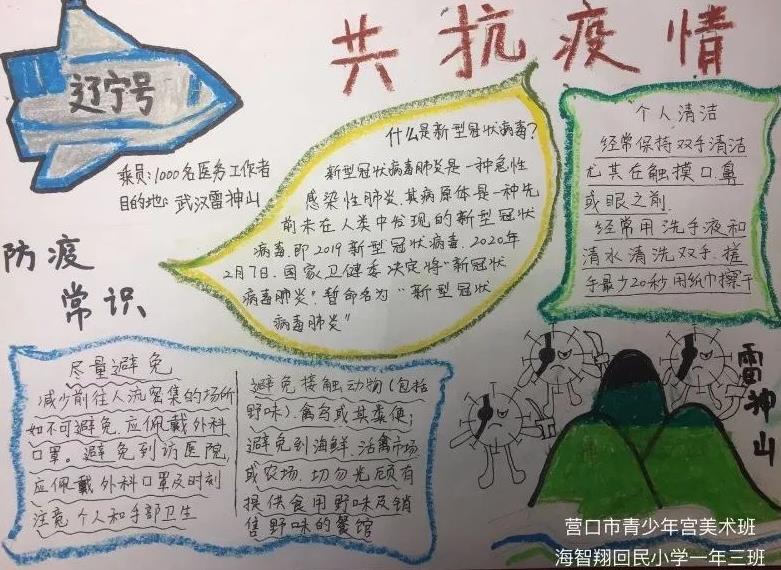 共抗疫情
辽宁号
乘员:1000名医务工作者
目的地:武汉雷神山
什么是新型冠状病毒?
新型冠状病毒肺炎是一种急性
感染性肺炎.其病原体是一种先
前未在人类中发现的新型冠状
病毒.即2019新型冠状病毒.2020年
2月7日.国家卫健委决定将“新冠状
病毒肺炎”暂命名为“新型冠状
病毒肺炎”
个人清洁
经常保持双手清洁
尤其在触摸口.鼻
或眼之前.
经常用洗手液和
清水清洗双手.搓
手最少20秒用纸巾擦干
防疫
常识
尽量避免
减少前往人流密集的场所
如不可避免.应佩戴外科
口罩。避免到访医院,
应佩戴外科口罩及时刻
注意个人和手部卫生
避免接触动物(包括
野味).禽鸟或其粪便;
避免到海鲜.活禽市场
或农场.切勿光顾有
提供食用野味及销
售野味的餐馆
雷神山
营口市青少年宫美术班
海智翔回民小学一年三班